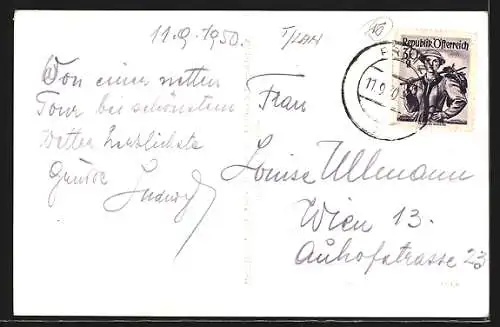 11.9.1950.
Von einer netten
Tour bei schönstem
Wetter herzlichste
Grüsse Ludwig
Frau
Louise Ullmann
Wien 13.
Auhofstrasse 23
Republik Österreich
11.9